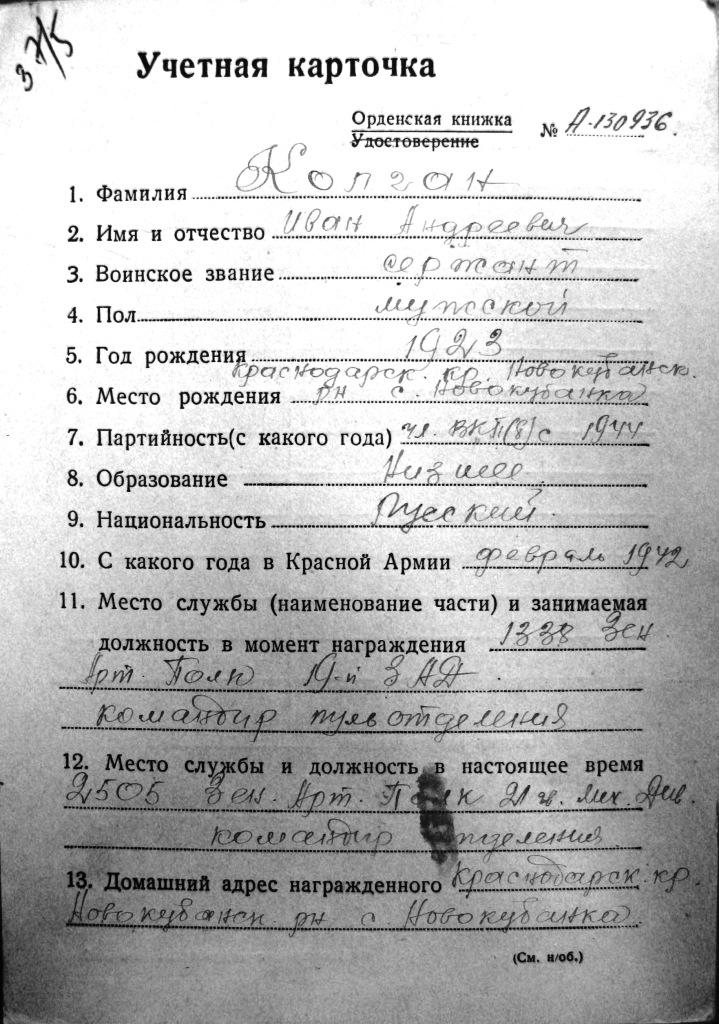 37/5
Учетная карточка
Орденская книжка
Удостоверение
№ А-130936.
1. Фамилия Колган
2. Имя и отчество Иван Андреевич
3. Воинское звание сержант
4. Пол мужской
5. Год рождения 1923
Краснодарск. кр. Новокубанск.
6. Место рождения рн с. Новокубанка
7. Партийность(с какого года) чл. ВКП(б) с 1944
8. Образование Низшее
9. Национальность Русский
10. С какого года в Красной Армии февраль 1942
11. Место службы (наименование части) и занимаемая
должность в момент награждения 1338 Зен.
Арт. Полк 19-й ЗАД.
командир пульотделения
12. Место службы и должность в настоящее время
2505 Зен. Арт. Полк 21 гв. Мех. Див.
командир отделения
13. Домашний адрес награжденного Краснодарск. кр.
Новокубанск. рн с. Новокубанка
(См. н/об.)